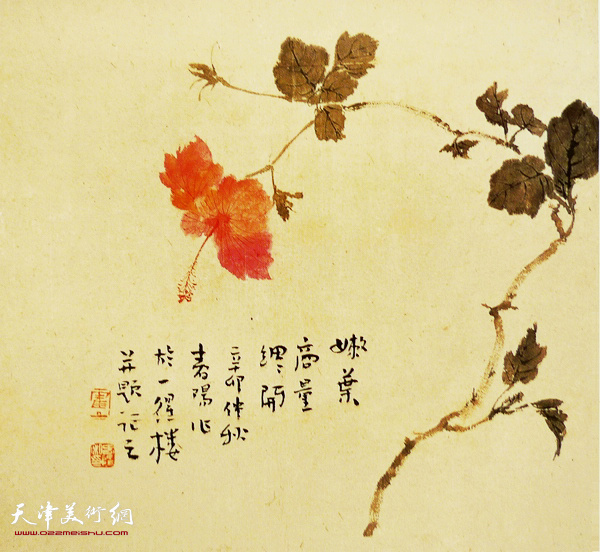 嫩葉
商量
細開
辛卯仲秋
春陽作
於一得樓
并題記之
天津美術網
www.022meishu.com